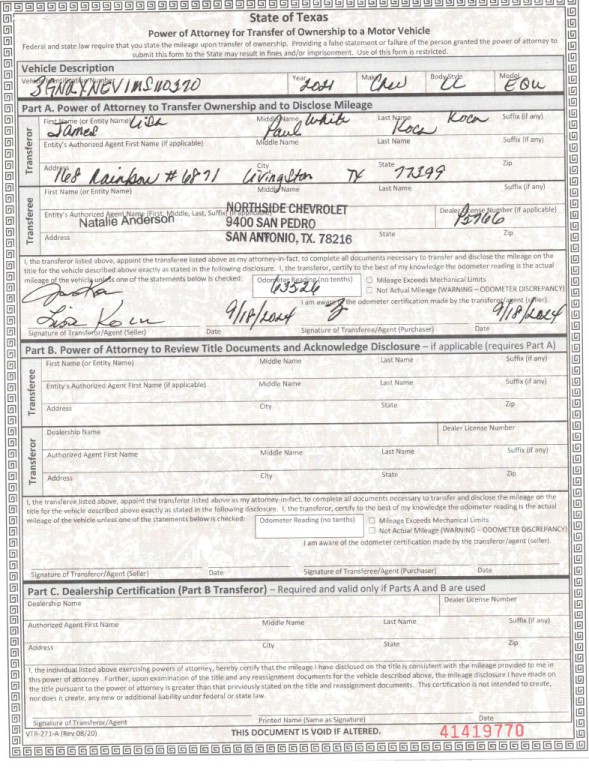 State of Texas
Power of Attorney for Transfer of Ownership to a Motor Vehicle
Federal and state law require that you state the mileage upon transfer of ownership. Providing a false statement or failure of the person granted the power of attorney to
submit this form to the State may result in fines and/or imprisonment. Use of this form is restricted.
Vehicle Description
Vehicle Identification Number Year Make Body Style Model
2021 Chev LL EQU
Part A. Power of Attorney to Transfer Ownership and to Disclose Mileage
Transferor
First Name (or Entity Name) Middle Name Last Name Suffix (if any)
James Lisa Paul White Koca Koca
Entity's Authorized Agent First Name (if applicable) Middle Name Last Name Suffix (if any)
Address City State Zip
168 Rainbow # 6871 Livingston TX 77399
Transferee
First Name (or Entity Name) Middle Name Last Name Suffix (if any)
Entity's Authorized Agent Name (First, Middle, Last, Suffix) (if applicable) Dealer License Number (if applicable)
Natalie Anderson
NORTHSIDE CHEVROLET
9400 SAN PEDRO
SAN ANTONIO, TX. 78216
P5766
Address State Zip
I, the transferor listed above, appoint the transferee listed above as my attorney-in-fact, to complete all documents necessary to transfer and disclose the mileage on the
title for the vehicle described above exactly as stated in the following disclosure. I, the transferor, certify to the best of my knowledge the odometer reading is the actual
mileage of the vehicle unless one of the statements below is checked: Odometer Reading (no tenths) Mileage Exceeds Mechanical Limits
63526 Not Actual Mileage (WARNING – ODOMETER DISCREPANCY)
I am aware of the odometer certification made by the transferor/agent (seller).
Lisa Koca 9/18/2024 9/18/2024
Signature of Transferor/Agent (Seller) Date Signature of Transferee/Agent (Purchaser) Date
Part B. Power of Attorney to Review Title Documents and Acknowledge Disclosure – if applicable (requires Part A)
Transferee
First Name (or Entity Name) Middle Name Last Name Suffix (if any)
Entity's Authorized Agent First Name (if applicable) Middle Name Last Name Suffix (if any)
Address City State Zip
Transferor
Dealership Name Dealer License Number
Authorized Agent First Name Middle Name Last Name Suffix (if any)
Address City State Zip
I, the transferee listed above, appoint the transferor listed above as my attorney-in-fact, to complete all documents necessary to transfer and disclose the mileage on the
title for the vehicle described above exactly as stated in the following disclosure. I, the transferor, certify to the best of my knowledge the odometer reading is the actual
mileage of the vehicle unless one of the statements below is checked: Odometer Reading (no tenths) Mileage Exceeds Mechanical Limits
Not Actual Mileage (WARNING – ODOMETER DISCREPANCY)
I am aware of the odometer certification made by the transferor/agent (seller).
Signature of Transferor/Agent (Seller) Date Signature of Transferee/Agent (Purchaser) Date
Part C. Dealership Certification (Part B Transferor) – Required and valid only if Parts A and B are used
Dealership Name Dealer License Number
Authorized Agent First Name Middle Name Last Name Suffix (if any)
Address City State Zip
I, the individual listed above exercising powers of attorney, hereby certify that the mileage I have disclosed on the title is consistent with the mileage provided to me in
this power of attorney. Further, upon examination of the title and any reassignment documents for the vehicle described above, the mileage disclosure I have made on
the title pursuant to the power of attorney is greater than that previously stated on the title and reassignment documents. This certification is not intended to create,
nor does it create, any new or additional liability under federal or state law.
Signature of Transferor/Agent Printed Name (Same as Signature) Date
VTR-271-A (Rev 08/20) THIS DOCUMENT IS VOID IF ALTERED. 41419770